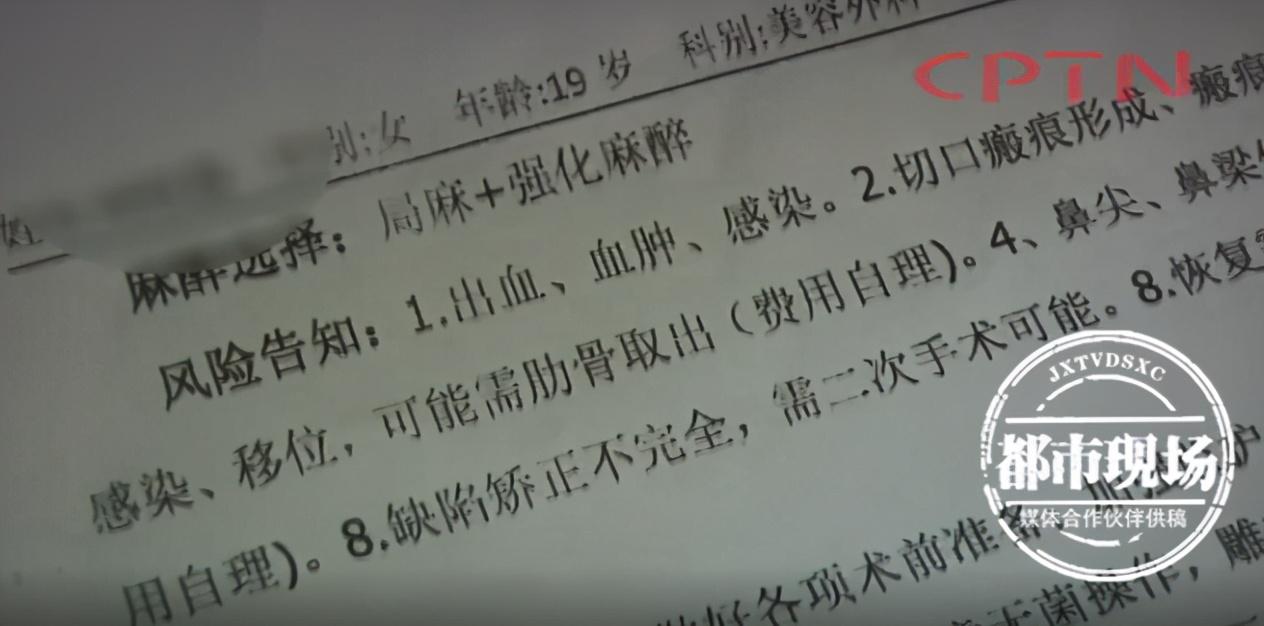 CPTN
姓 别:女 年龄:19岁 科别:美容外科
麻醉选择：局麻+强化麻醉
风险告知：1.出血、血肿、感染。2.切口瘢痕形成、瘢痕
感染、移位，可能需肋骨取出（费用自理)。4、鼻尖、鼻梁
用自理)。8.缺陷矫正不完全，需二次手术可能。8.恢复
好各项术前准备
无菌操作，雕
JXTVDSXC
都市现场
媒体合作伙伴供稿